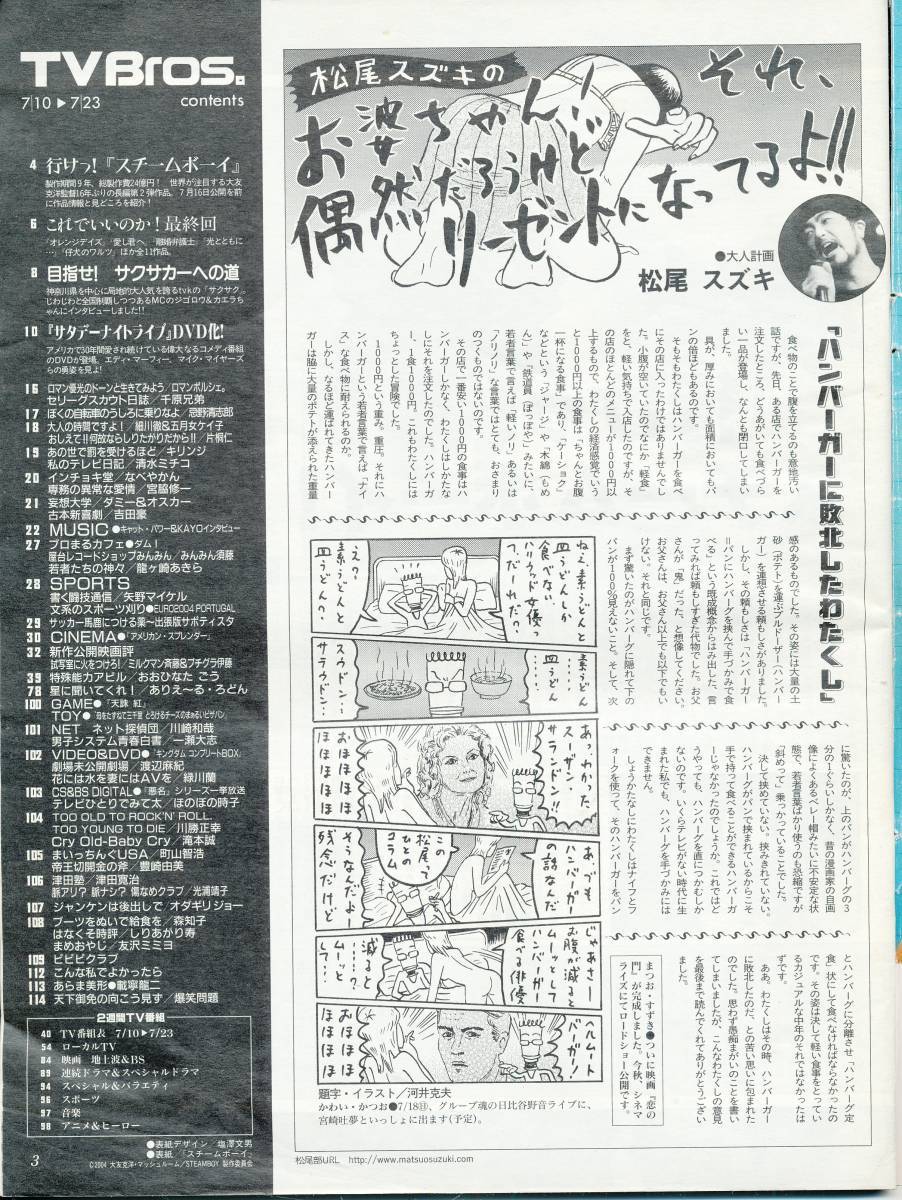 TVBros.
7/10▶7/23 contents
4 行けっ!『スチームボーイ』
製作期間9年、総製作費24億円! 世界が注目する大友
克洋監督16年ぶりの長編第2弾作品。7月16日公開を前
に作品情報と見どころを紹介!
6 これでいいのか!最終回
「オレンジデイズ」「愛し君へ」「離婚弁護士」「光とともに
…」「仔犬のワルツ」ほか全11作品。
8 目指せ! サクサカーへの道
神奈川県を中心に局地的大人気を誇るtvkの「サクサク」。
じわじわと全国制覇しつつあるMCのジゴロウ&カエラち
ゃんにインタビューしました!!
10 『サタデーナイトライブ』DVD化!
アメリカで30年間愛され続けている偉大なるコメディ番組
のDVDが登場。エディ・マーフィー、マイク・マイヤーズ
らの勇姿を見よ!
16 ロマン優光のドーンと生きてみよう/ロマンポルシェ。
セリーグスカウト日誌/千原兄弟
17 ぼくの自転車のうしろに乗りなよ/忌野清志郎
18 大人の時間ですよ!/細川徹&五月女ケイ子
おしえて!!何故ならしりたがりだから!!/片桐仁
19 あの世で罰を受けるほど/キリンジ
私のテレビ日記/清水ミチコ
20 インチョキ堂/なべやかん
専務の異常な愛情/宮脇修一
21 妄想大学/ダミー&オスカー
古本新喜劇/吉田豪
22 MUSIC●キャット・パワー&KAYOインタビュー
27 プロまるカフェ●ダム!
屋台レコードショップみんみん/みんみん須藤
若者たちの神々/龍ヶ崎あきら
28 SPORTS
書く闘技通信/矢野マイケル
文系のスポーツ刈り●EURO2004 PORTUGAL
29 サッカー馬鹿につける薬〜出張版サポティスタ
30 CINEMA●「アメリカン・スプレンダー」
32 新作公開映画評
試写室に火をつけろ!/ミルクマン斉藤&ブチグラ伊藤
39 特殊能力アビル/おおひなた ごう
78 星に聞いてくれ!/ありえ〜る・ろどん
100 GAME●「天誅 紅」
TOY●「母をたずねて三千里 とろけるチーズのまぁるいピザパン」
101 NET ネット探偵団/川崎和哉
男子システム青春白書/一瀬大志
102 VIDEO&DVD●「キングダム コンプリートBOX」
劇場未公開劇場/渡辺麻紀
花には水を妻にはAVを/緑川蘭
103 CS&BS DIGITAL●「悪名」シリーズ一挙放送
テレビひとりでみて太/ほのぼの時子
104 TOO OLD TO ROCK'N' ROLL,
TOO YOUNG TO DIE/川勝正幸
Cry Old-Baby Cry/滝本誠
105 まいっちんぐUSA/町山智浩
帝王切開金の斧/豊崎由美
106 津田塾/津田寛治
脈アリ? 脈ナシ? 傷なめクラブ/光浦靖子
107 ジャンケンは後出しで/オダギリジョー
108 ブーツをぬいで給食を/森知子
はなくそ時評/しりあがり寿
まめおやじ/友沢ミミヨ
109 ピピピクラブ
112 こんな私でよかったら
113 あらま美形●載寧龍二
114 天下御免の向こう見ず/爆笑問題
2週間TV番組
40 TV番組表 7/10▶7/23
54 ローカルTV
84 映画 地上波&BS
89 連続ドラマ&スペシャルドラマ
94 スペシャル&バラエティ
96 スポーツ
97 音楽
98 アニメ&ヒーロー
●表紙デザイン/塩澤文男
●表紙/「スチームボーイ」
©2004 大友克洋・マッシュルーム/STEAMBOY 製作委員会
3
松尾スズキの
お婆ちゃん!それ、
偶然だろうけど
リーゼントになってるよ!!
●大人計画
松尾 スズキ
「ハンバーガーに敗北したわたくし」
食べ物のことで腹を立てるのも意地汚い
話ですが、先日、ある店でハンバーガーを
注文したところ、どうあがいても食べづら
い一品が登場し、なんとも閉口してしまい
ました。
具が、厚みにおいても面積においてもパ
ンの倍ほどもあるのです。
そもそもわたくしはハンバーガーを食べ
にその店に入ったわけではありませんでし
た。小腹が空いていたのでなにか「軽食」
もと、軽い気持ちで入店したのですが、そ
の店のほとんどのメニューが1000円以
上するもので、わたくしの経済感覚でいう
と1000円以上の食事は「ちゃんとお腹
一杯になる食事」であり、「ケーショク」
などという「ジャージ」や「木綿(もめ
ん)」や「鉄道員(ぽっぽや)」みたいに、
若者言葉で言えば「軽いノリ」あるいは
「ノリノリ」な言葉ではとても、おさまり
のつくものではないのです。
その店で一番安い1000円の食事はハ
ンバーガーしかなく、わたくしはしかたな
しにそれを注文したのでした。ハンバーガ
ー、1食100円。これもわたくしには
ちょっとした冒険でした。
1000円という重み。重圧。それにハ
ンバーガーという若者言葉で言えば「ナイ
ス」な食べ物に耐えられるのか。
しかし、なるほど運ばれてきたハンバー
ガーは脇に大量のポテトが添えられた重量
感のあるものでした。その姿には大量の土
砂(ポテト)を運ぶブルドーザー(ハンバー
ガー)を連想させる頼もしさがありました。
しかし、その頼もしさは「ハンバーガー
=パンにハンバーグを挟んで手づかみで食
べる」という既成概念からはみ出した、言
ってみれば頼もしすぎた代物でした。お父
さんが「鬼」だった、と想像してください。
お父さんは、お父さん以上でも以下でもい
けない。それと同じです。
まず驚いたのがハンバーグに隠れて下の
パンが100%見えないこと。そして、次
に驚いたのが、上のパンがハンバーグの3
分の1ぐらいしかなく、昔の漫画家の自画
像によくあるベレー帽みたいに不安定な状
態で、若者言葉ばかり使うのも恐縮ですが
「斜めって」乗っかっていることでした。
決して挟めていない。挟みきれていない。
ハンバーグがパンで挟まれているからこそ
手で持って食べることができるハンバーガ
ーじゃなかったのでしょうか。これではど
うやっても、ハンバーグを直につかむしか
ないのです。いくらテレビがない時代に生
まれた私でも、ハンバーグを手づかみには
できません。
しょうかたなしにわたくしはナイフとフ
ォークを使って、そのハンバーガーをパン
とハンバーグに分離させ「ハンバーグ定
食」状にして食べなければならなかったの
です。その姿は決して軽い食事をとってい
るカジュアルな中年のそれではなかったは
ずです。
ああ、わたくしはその時、ハンバーガー
に敗北したのだ、との苦い思いに包まれた
のでした。思わず愚痴まがいのことを書い
てしまいましたが、こんなわたくしの意見
を最後まで読んでくれてありがとうござい
ました。
ねえ、素うどんと
皿うどんしか
食べない
ハリウッド女優っ
て、だーれだ?
え?
素うどんと
皿うどんの?
素うどん…
皿うどん…
スウドン…
サラウドン…
あっ、わかった
スーザン・
サランドン!!
おほほほほ
ほほほほ
あ、でも
ハンバーガー
の話なんだ
この
松尾って
ひとの
コラム
そうなんだよー
残念だけど
じゃあさー
お腹が減ると
ムーッとして
ハンバーガー
食べる俳優
減ると?
……
ムーッと…?
ヘルムート・
バーガー!
おほほほほ
ほほほほ
まつお・すずき●ついに映画『恋の
門』が完成しました。今秋、シネマ
ライズにてロードショー公開です。
題字・イラスト/河井克夫
かわい・かつお●7/18㊐、グループ魂の日比谷野音ライブに、
宮崎吐夢といっしょに出ます(予定)。
松尾部URL http://www.matsuosuzuki.com